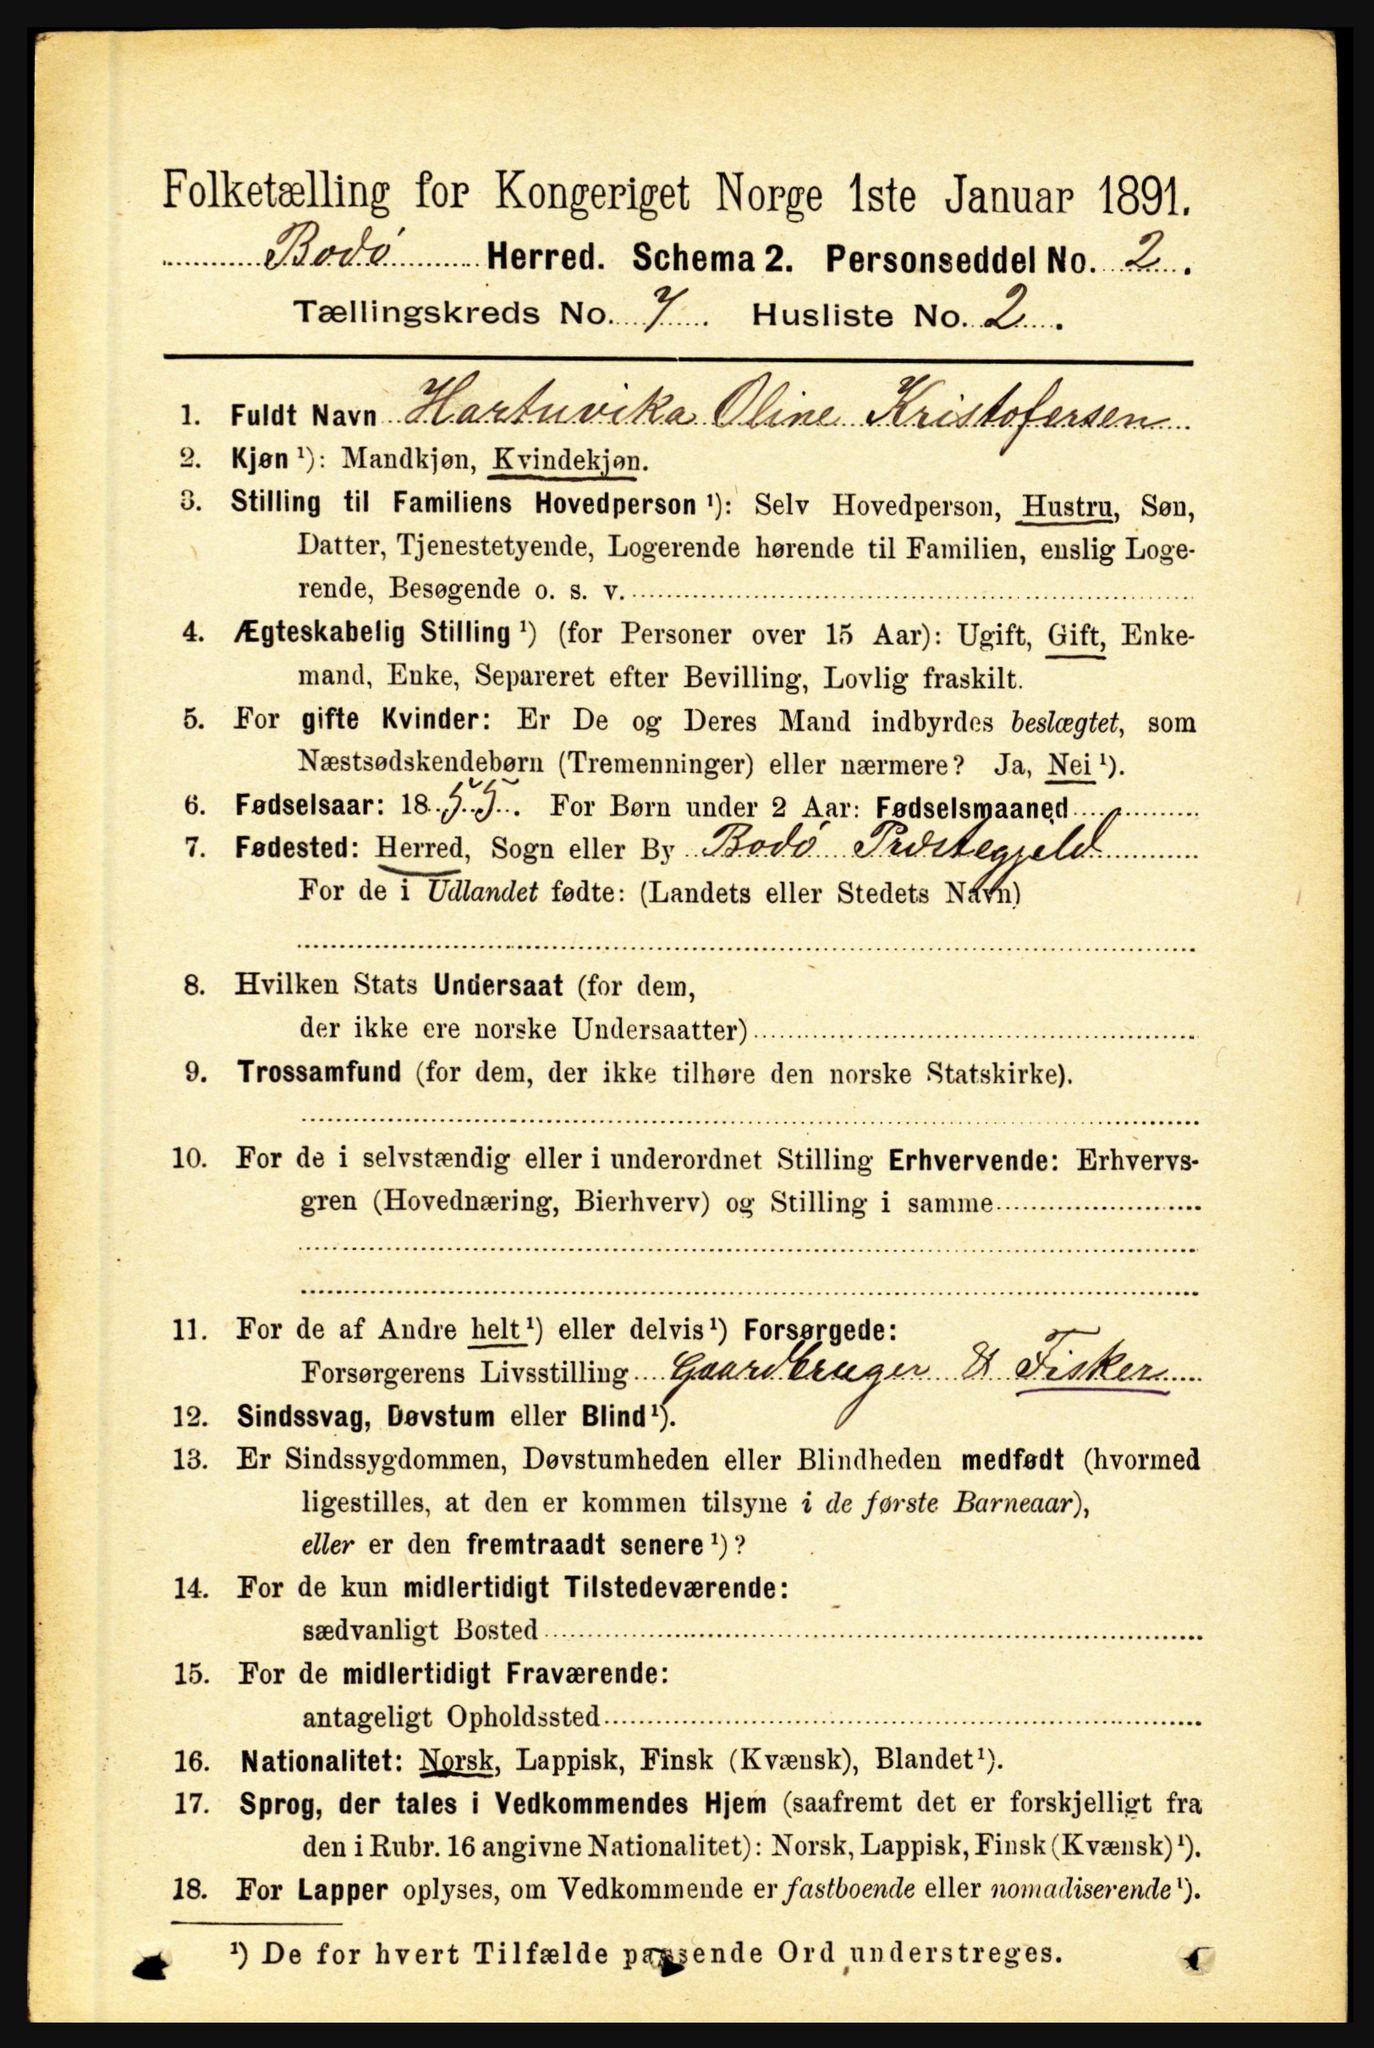 Folketælling for Kongeriget Norge 1ste Januar 1891.
Bodø Herred. Schema 2. Personseddel No. 2.
Tællingskreds No. 7. Husliste No. 2.
1. Fuldt Navn Hartuvika Oline Kristofersen
2. Kjøn ¹): Mandkjøn, Kvindekjøn.
3. Stilling til Familiens Hovedperson ¹): Selv Hovedperson, Hustru, Søn,
Datter, Tjenestetyende, Logerende hørende til Familien, enslig Loge-
rende, Besøgende o. s. v.
4. Ægteskabelig Stilling ¹) (for Personer over 15 Aar): Ugift, Gift, Enke-
mand, Enke, Separeret efter Bevilling, Lovlig fraskilt.
5. For gifte Kvinder: Er De og Deres Mand indbyrdes beslægtet, som
Næstsødskendebørn (Tremenninger) eller nærmere? Ja, Nei ¹).
6. Fødselsaar: 1855. For Børn under 2 Aar: Fødselsmaaned
7. Fødested: Herred, Sogn eller By Bodø Præstegjeld
For de i Udlandet fødte: (Landets eller Stedets Navn)
8. Hvilken Stats Undersaat (for dem,
der ikke ere norske Undersaatter)
9. Trossamfund (for dem, der ikke tilhøre den norske Statskirke).
10. For de i selvstændig eller i underordnet Stilling Erhvervende: Erhvervs-
gren (Hovednæring, Bierhverv) og Stilling i samme
11. For de af Andre helt ¹) eller delvis ¹) Forsørgede:
Forsørgerens Livsstilling Gaardbruger & Fisker
12. Sindssvag, Døvstum eller Blind ¹).
13. Er Sindssygdommen, Døvstumheden eller Blindheden medfødt (hvormed
ligestilles, at den er kommen tilsyne i de første Barneaar),
eller er den fremtraadt senere ¹)?
14. For de kun midlertidigt Tilstedeværende:
sædvanligt Bosted
15. For de midlertidigt Fraværende:
antageligt Opholdssted
16. Nationalitet: Norsk, Lappisk, Finsk (Kvænsk), Blandet ¹).
17. Sprog, der tales i Vedkommendes Hjem (saafremt det er forskjelligt fra
den i Rubr. 16 angivne Nationalitet): Norsk, Lappisk, Finsk (Kvænsk) ¹).
18. For Lapper oplyses, om Vedkommende er fastboende eller nomadiserende ¹).
¹) De for hvert Tilfælde passende Ord understreges.